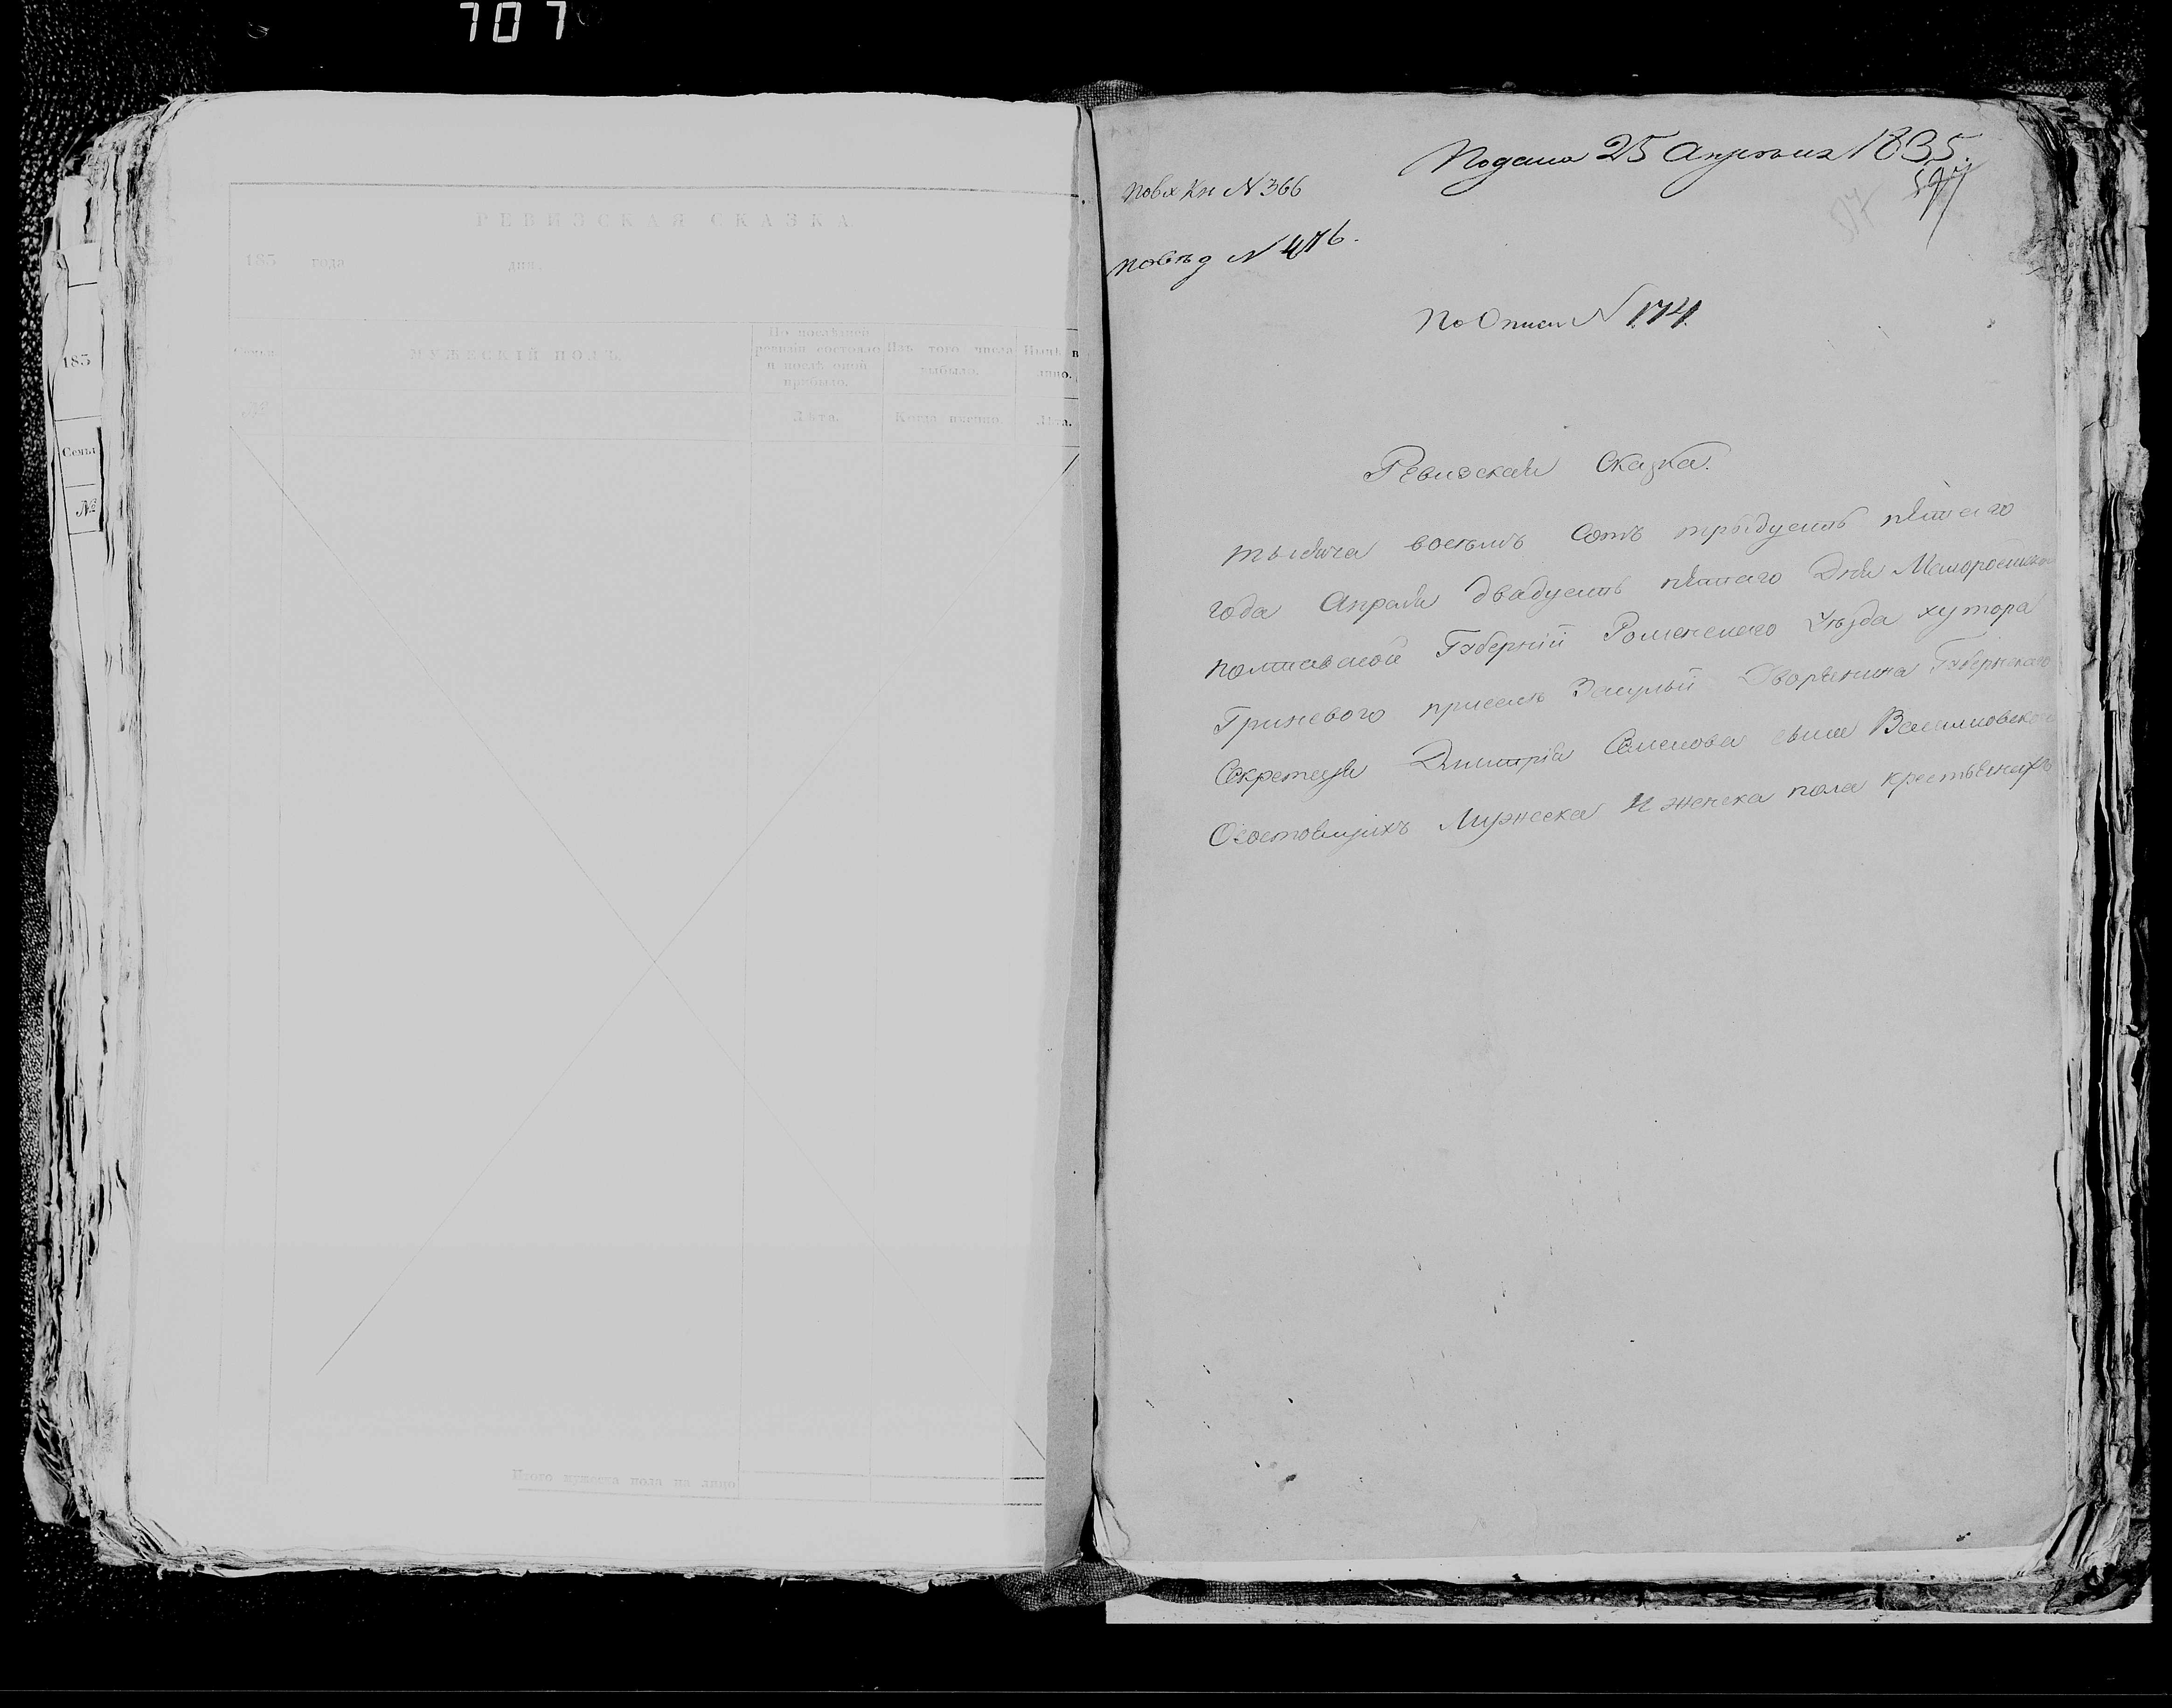 707
РЕВИЗСКАЯ СКАЗКА
183 года дня.
Семьи
МУЖЕСКІЙ ПОЛЪ.
По послѣдней
ревизіи состояло
и послѣ оной
прибыло.
Изъ того числа
выбыло.
Нынѣ н
лицо.
№
Лѣта.
Когда именно.
Лѣта.
Итого мужеска пола на лицо
183
Семьи
№
Подана 25 Апрѣля 1835.
По вх Кн № 366
577
57
По вѣд № 476.
По Описи № 174.
Ревизская Сказка.
тысяча восемь Сотъ тридцать пятаго
года Апреля двадцать пятаго Дня Малоросійской
полтавской Губерніи Роменского Уѣзда хутора
Гриневого присель Засулья Дворянина Губернскаго
Секретаря Димитрія Семенова сына Василиовскаго
О состоящихъ Мужеска И женска пола крестьянахъ